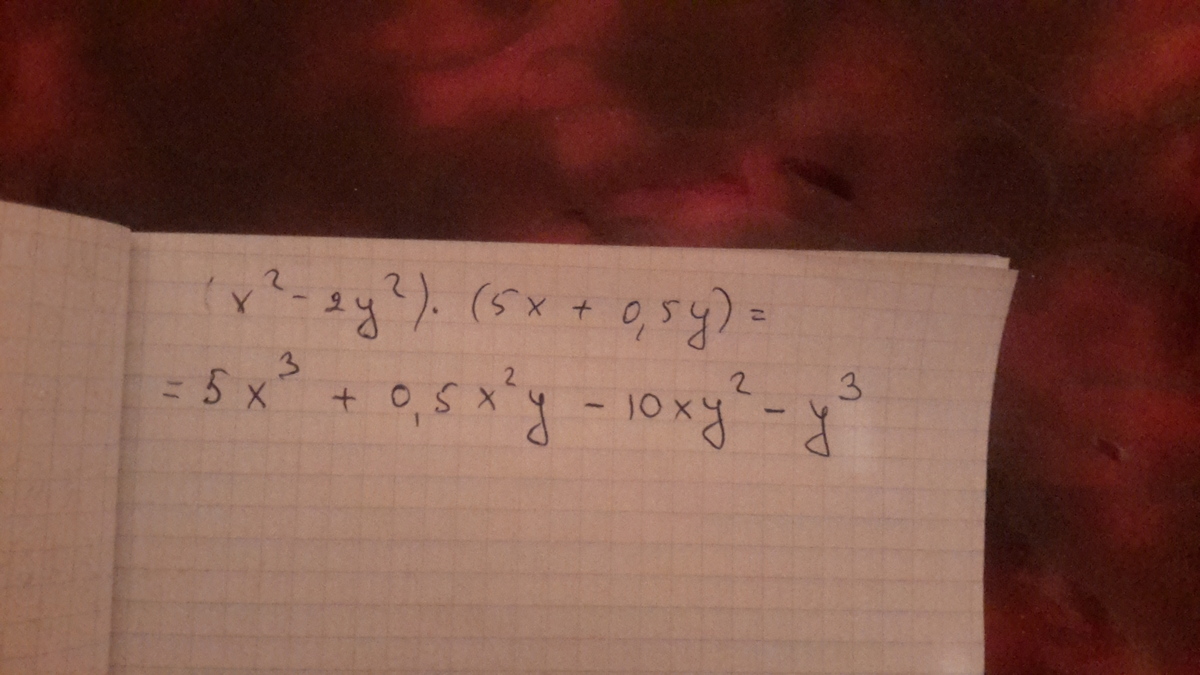 (x² - 2y²). (5x + 0,5y) =
= 5x³ + 0,5x²y - 10xy² - y³